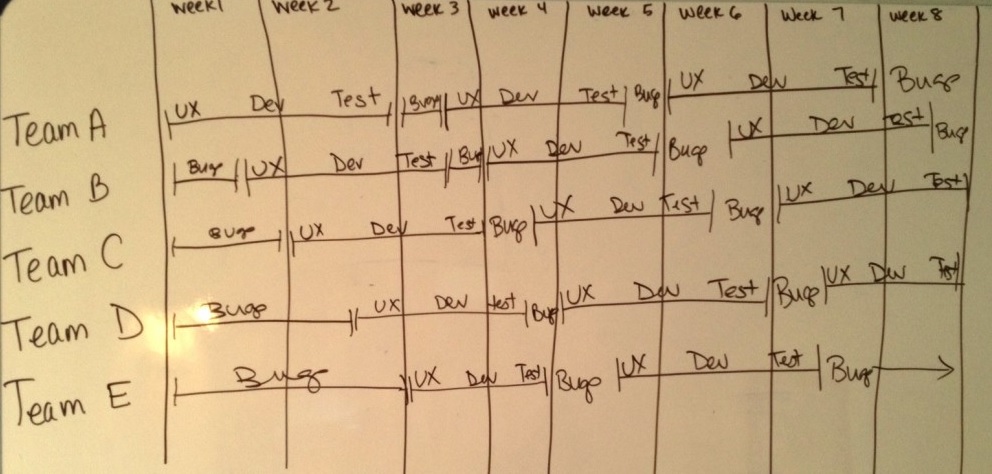 week 1 week 2 week 3 week 4 week 5 week 6 week 7 week 8
Team A UX Dev Test Bugs UX Dev Test Bugs UX Dev Test Bugs
Team B Bugs UX Dev Test Bugs UX Dev Test Bugs UX Dev Test Bugs
Team C Bugs UX Dev Test Bugs UX Dev Test Bugs UX Dev Test
Team D Bugs UX Dev test Bugs UX Dev Test Bugs UX Dev Test
Team E Bugs UX Dev Test Bugs UX Dev Test Bugs